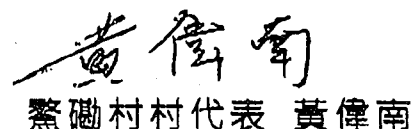 黃偉南
鰲磡村村代表 黃偉南